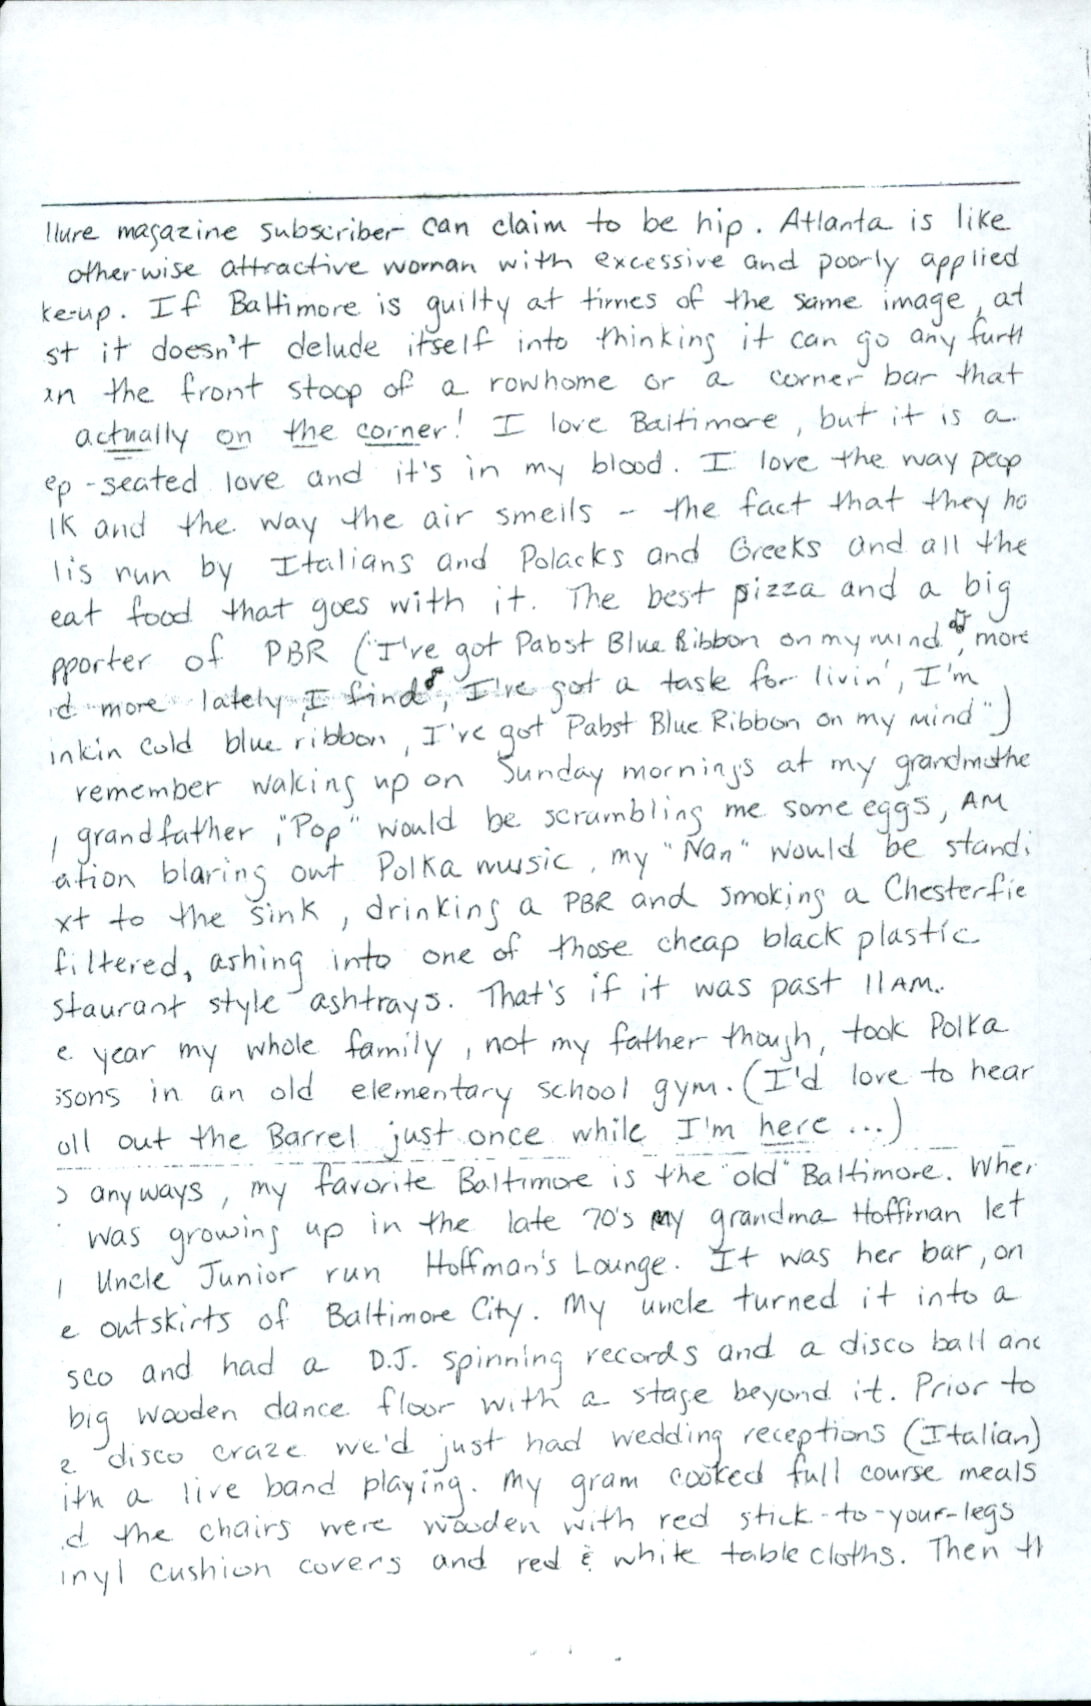 llure magazine subscriber can claim to be hip. Atlanta is like
otherwise attractive woman with excessive and poorly applied
ke-up. If Baltimore is guilty at times of the same image, at
st it doesn't delude itself into thinking it can go any furth
an the front stoop of a rowhome or a corner bar that
actually on the corner! I love Baltimore, but it is a
ep-seated love and it's in my blood. I love the way peop
lk and the way the air smells - the fact that they ha
lis run by Italians and Polacks and Greeks and all the
eat food that goes with it. The best pizza and a big
pporter of PBR ("I've got Pabst Blue Ribbon on my mind ♫, more
d more lately I find ♪, I've got a taske for livin', I'm
inkin cold blue ribbon, I've got Pabst Blue Ribbon on my mind")
remember waking up on Sunday mornings at my grandmothe
, grandfather, "Pop" would be scrambling me some eggs, AM
ation blaring out Polka music, my "Nan" would be standi
xt to the sink, drinking a PBR and smoking a Chesterfie
filtered, ashing into one of those cheap black plastic
staurant style ashtrays. That's if it was past 11AM.
e year my whole family, not my father though, took Polka
ssons in an old elementary school gym. (I'd love to hear
oll out the Barrel just once while I'm here ...)
o anyways, my favorite Baltimore is the "old" Baltimore. When
was growing up in the late 70's my grandma Hoffman let
Uncle Junior run Hoffman's Lounge. It was her bar, on
e outskirts of Baltimore City. My uncle turned it into a
sco and had a D.J. spinning records and a disco ball and
big wooden dance floor with a stage beyond it. Prior to
e disco craze we'd just had wedding receptions (Italian)
ith a live band playing. My gram cooked full course meals
d the chairs were wooden with red stick-to-your-legs
inyl cushion covers and red & white table cloths. Then th